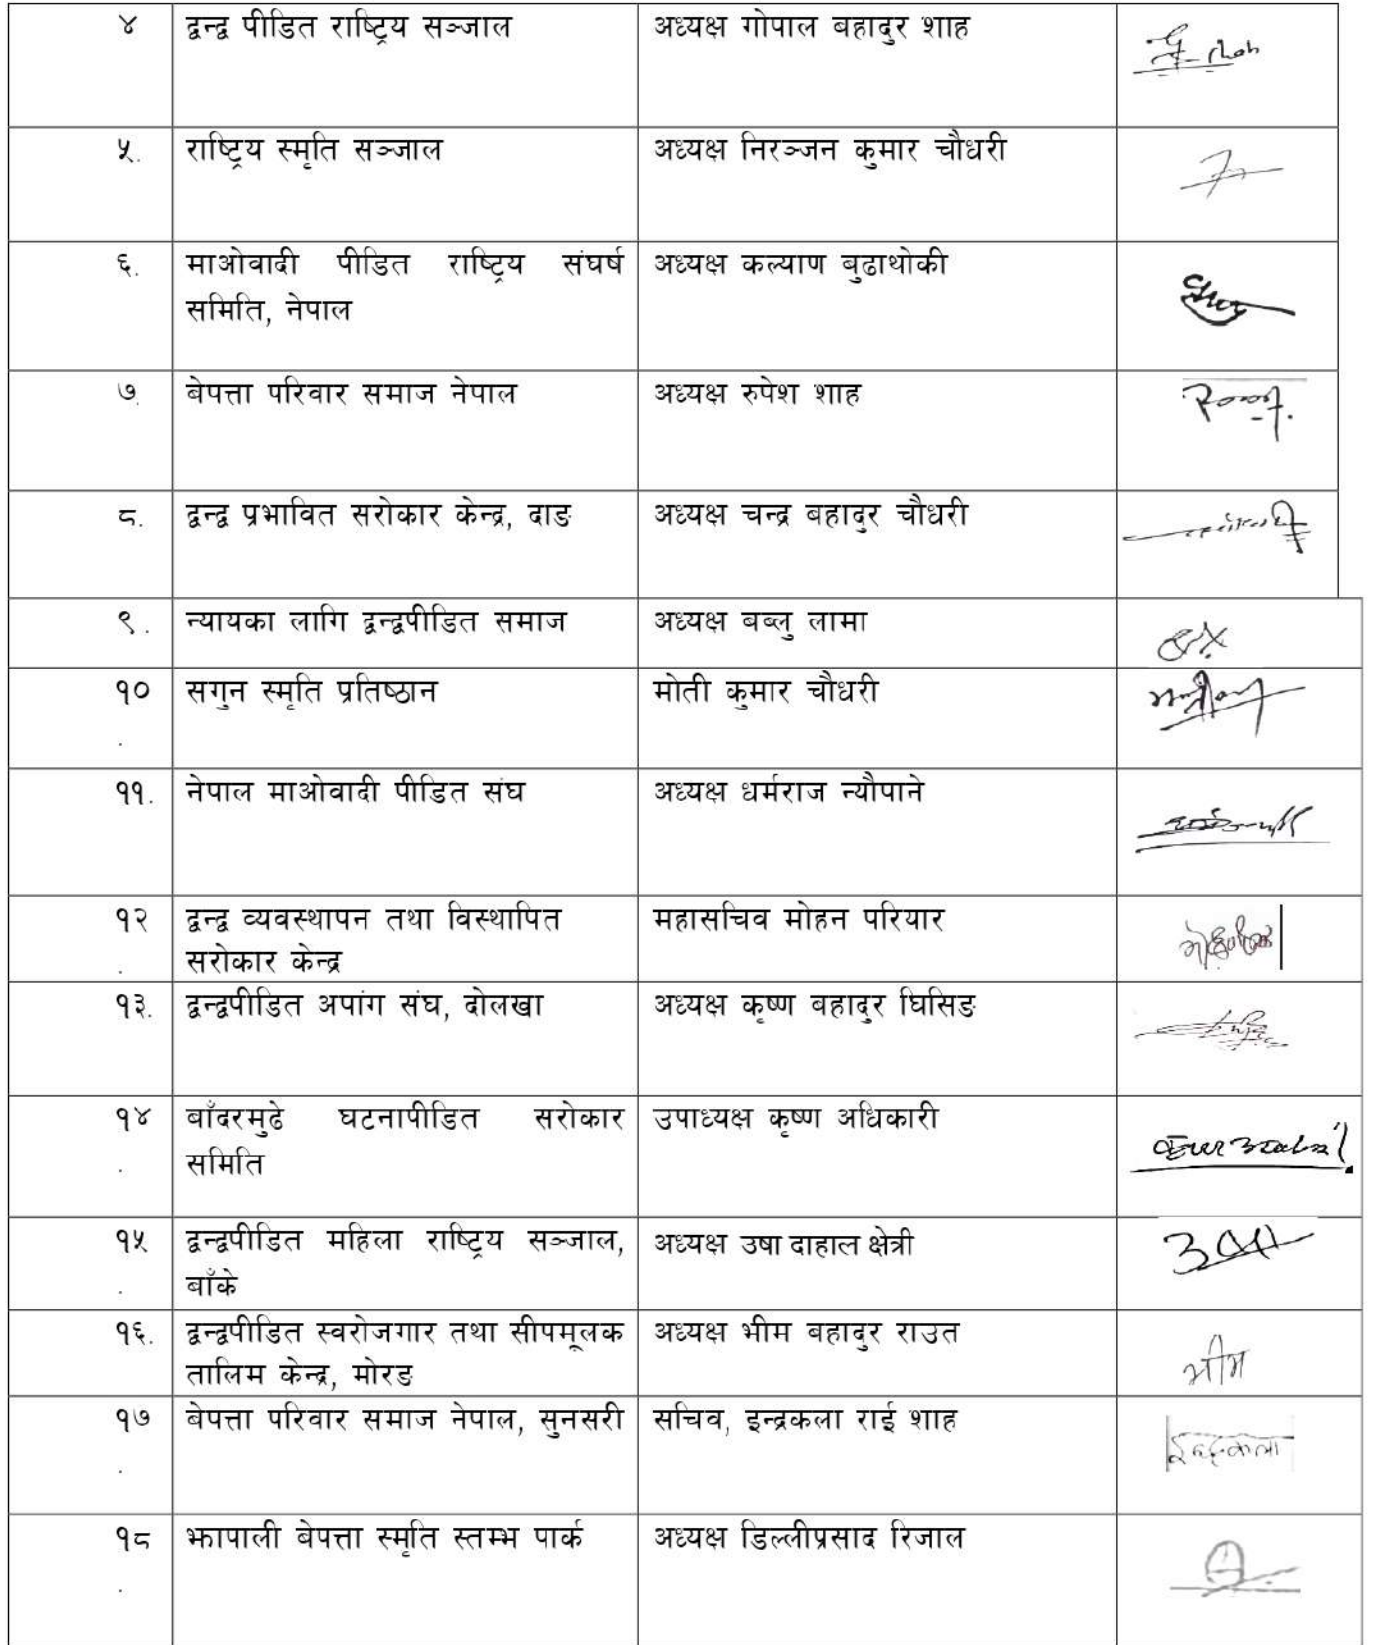 ४ द्वन्द्व पीडित राष्ट्रिय सञ्जाल अध्यक्ष गोपाल बहादुर शाह
५. राष्ट्रिय स्मृति सञ्जाल अध्यक्ष निरञ्जन कुमार चौधरी
६. माओवादी पीडित राष्ट्रिय संघर्ष अध्यक्ष कल्याण बुढाथोकी
समिति, नेपाल
७. बेपत्ता परिवार समाज नेपाल अध्यक्ष रुपेश शाह
८. द्वन्द्व प्रभावित सरोकार केन्द्र, दाङ अध्यक्ष चन्द्र बहादुर चौधरी
९. न्यायका लागि द्वन्द्वपीडित समाज अध्यक्ष बब्लु लामा
१० सगुन स्मृति प्रतिष्ठान मोती कुमार चौधरी
.
११. नेपाल माओवादी पीडित संघ अध्यक्ष धर्मराज न्यौपाने
१२ द्वन्द्व व्यवस्थापन तथा विस्थापित महासचिव मोहन परियार
. सरोकार केन्द्र
१३. द्वन्द्वपीडित अपांग संघ, दोलखा अध्यक्ष कृष्ण बहादुर घिसिङ
१४ बाँदरमुढे घटनापीडित सरोकार उपाध्यक्ष कृष्ण अधिकारी
. समिति
१५ द्वन्द्वपीडित महिला राष्ट्रिय सञ्जाल, अध्यक्ष उषा दाहाल क्षेत्री
. बाँके
१६. द्वन्द्वपीडित स्वरोजगार तथा सीपमूलक अध्यक्ष भीम बहादुर राउत
तालिम केन्द्र, मोरङ भीम
१७ बेपत्ता परिवार समाज नेपाल, सुनसरी सचिव, इन्द्रकला राई शाह
.
१८ झापाली बेपत्ता स्मृति स्तम्भ पार्क अध्यक्ष डिल्लीप्रसाद रिजाल
.